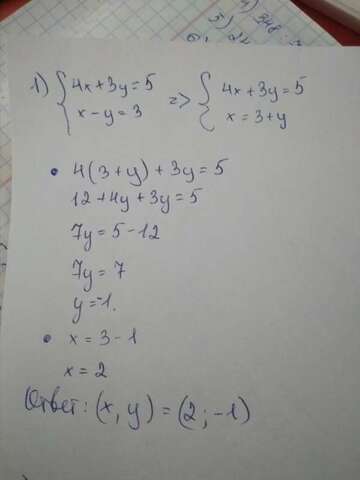 1) { 4x+3y=5 => { 4x+3y=5
x-y=3 x=3+y
• 4(3+y)+3y=5
12+4y+3y=5
7y=5-12
7y=7
y=-1.
• x=3-1
x=2
Ответ: (x,y)=(2;-1)